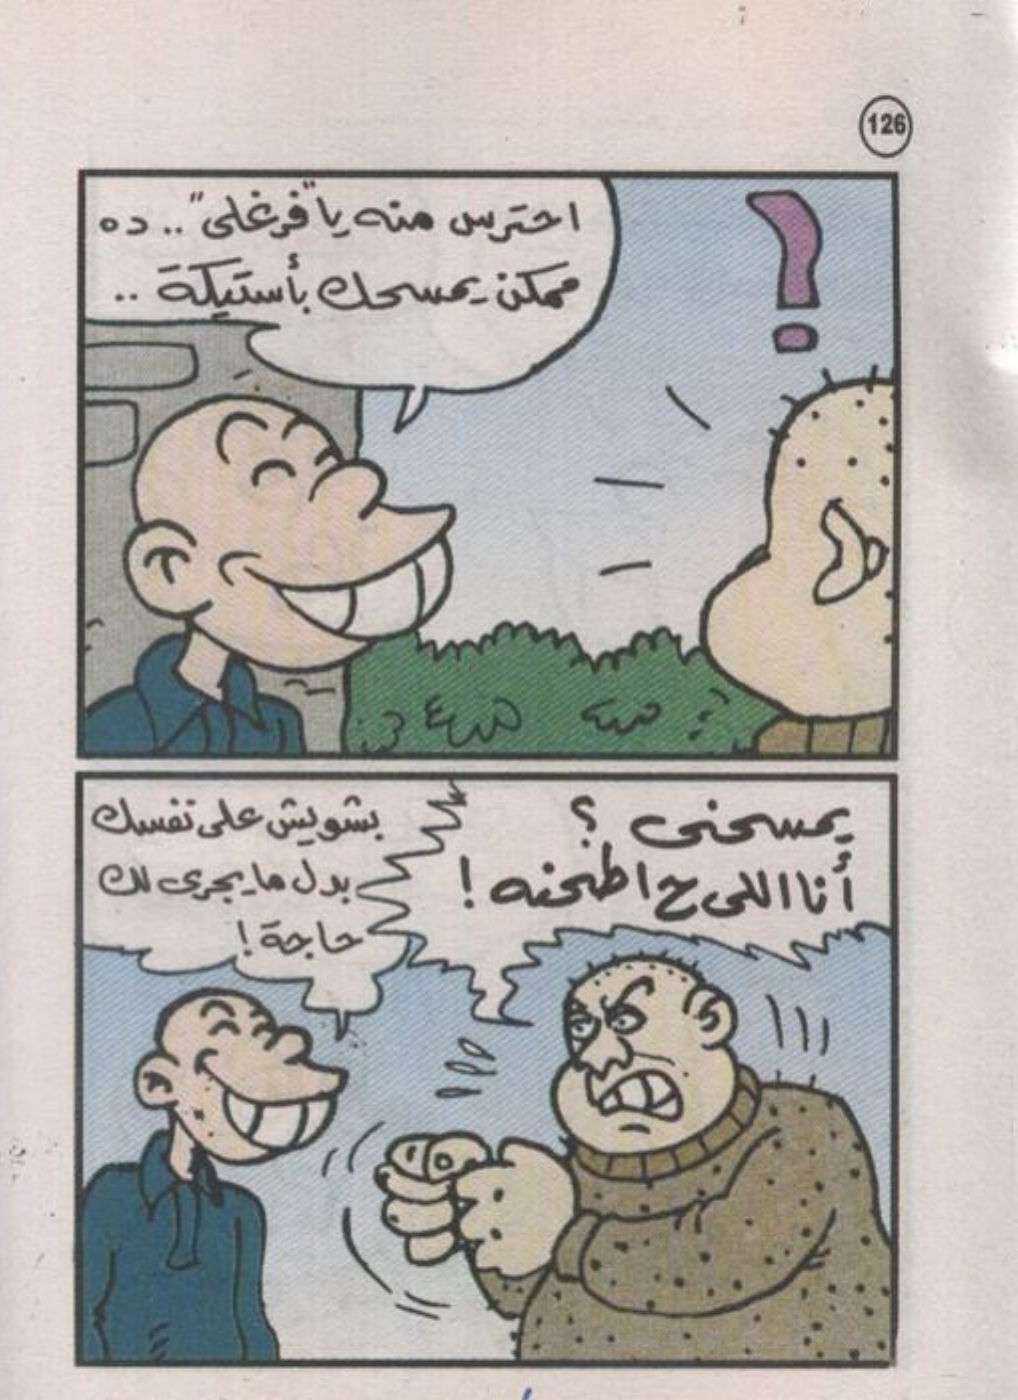 126
احترس منه يا "فرغلى" .. ده
ممكن يمسحك بأستيكة ..
يمسحنى ؟
أنا اللى ح اطحنه !
بشويش على نفسك
بدل ما يجرى لك
حاجة !